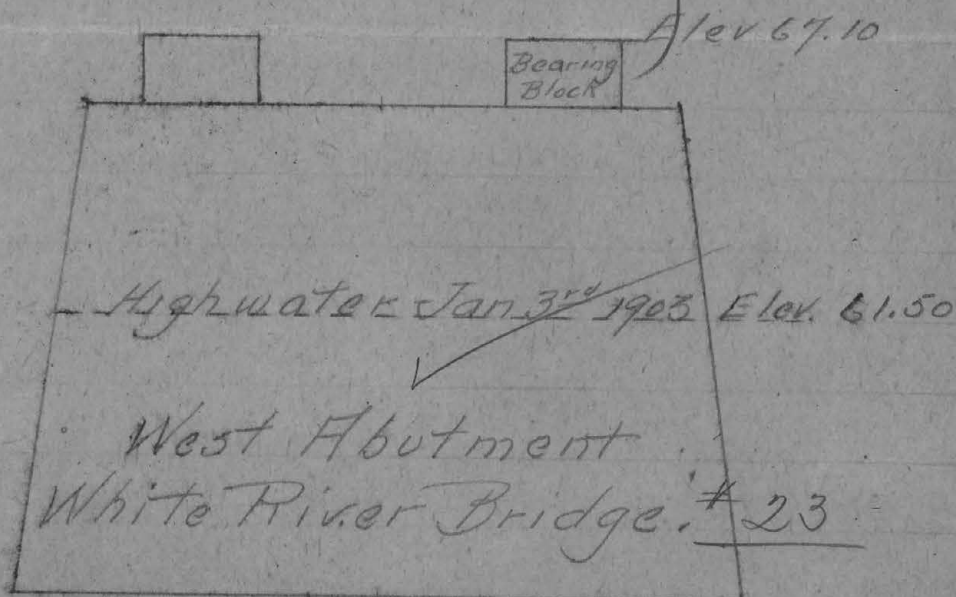 Elev 67.10
Bearing
Block
Highwater Jan 3rd 1903 Elev. 61.50
West Abutment
White River Bridge. # 23